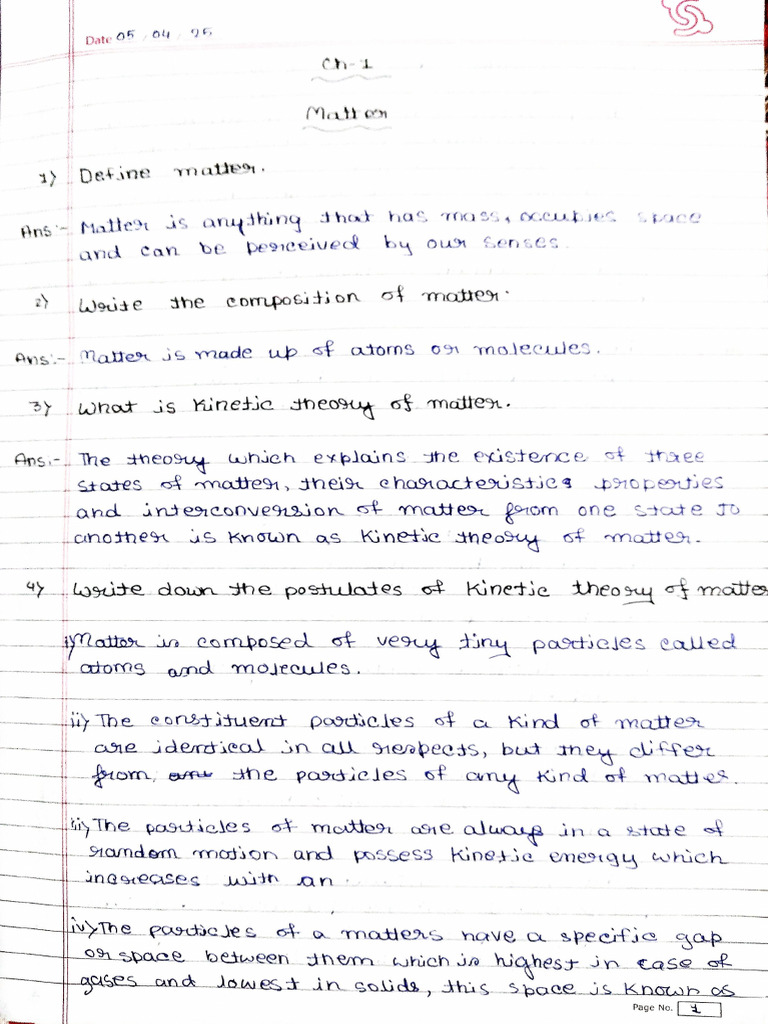 Date 05 / 04 / 25
Ch-1
Matter
1) Define matter.
Ans:- Matter is anything that has mass, occupies space
and can be perceived by our senses.
2) Write the composition of matter.
Ans:- Matter is made up of atoms or molecules.
3) What is kinetic theory of matter.
Ans:- The theory which explains the existence of three
states of matter, their characteristics properties
and interconversion of matter from one state to
another is known as kinetic theory of matter.
4) Write down the postulates of kinetic theory of matter
i) Matter is composed of very tiny particles called
atoms and molecules.
ii) The constituent particles of a kind of matter
are identical in all respects, but they differ
from, the particles of any kind of matter.
iii) The particles of matter are always in a state of
random motion and possess kinetic energy which
increases with an
iv) The particles of a matters have a specific gap
or space between them which is highest in case of
gases and lowest in solids, this space is known as
Page No. 1